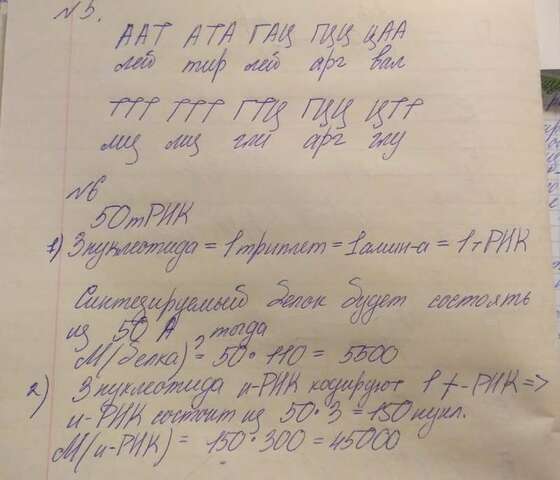 №5.
ААТ АТА ГАЦ ГЦЦ ЦАА
лей тир лей арг вал
ТТТ ТТТ ГТЦ ГЦЦ ЦТТ
лиз лиз гли арг глу
№6
50тРНК
1) 3нуклеотида = 1триплет = 1амин-а = 1тРНК
Синтезируемый белок будет состоять
из 50 А, тогда
М(белка) = 50·110 = 5500
2) 3 нуклеотида и-РНК кодируют 1 т-РНК =>
и-РНК состоит из 50·3 = 150нукл.
М(и-РНК) = 150·300 = 45000